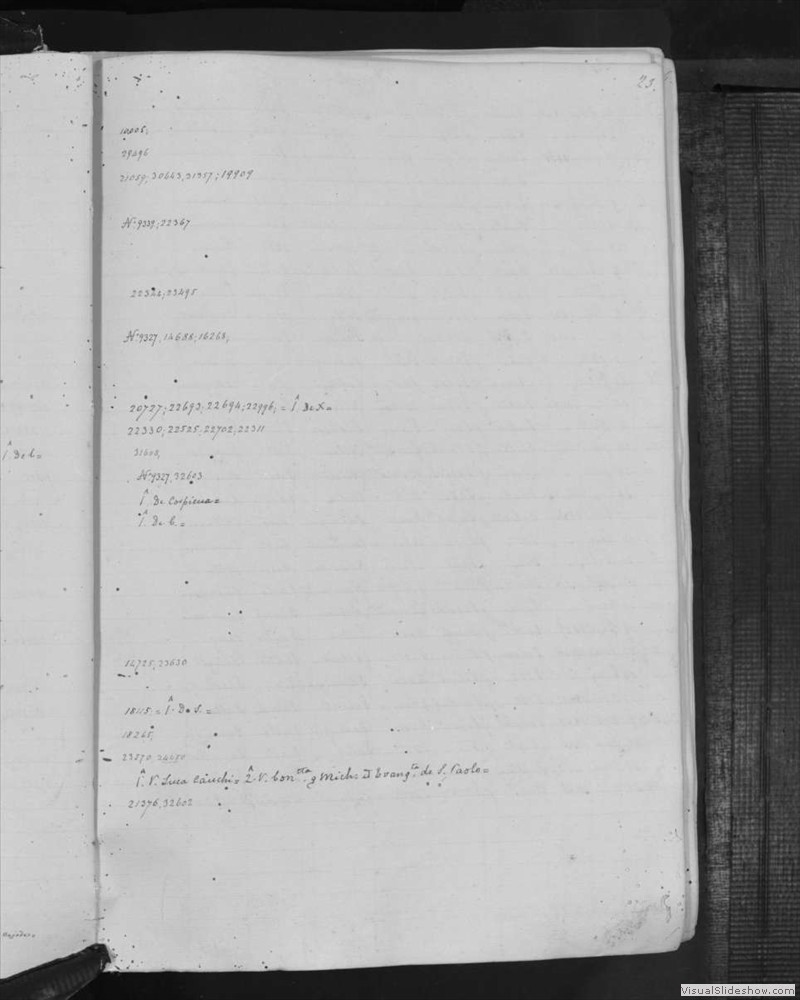 23.
10005;
29496
21059; 30643, 31357; 18909
N.9339; 22367
22321; 23495
N.9327, 14688; 16268;
20727; 22693; 22694; 22996; = Î. De X=
22330; 22525; 22702; 22311
31608,
Î. De C=
N.9327, 32603
Î. De Cospicua=
Î. De C.=
14725, 23630
18115 = Î. De S.=
18265;
23570, 24570
Î. V. Luca Cauchi= 2̂. V. Con.tta q Mich= D Evang.ta de S. Paolo=
21376, 32602
VisualSlideshow.com